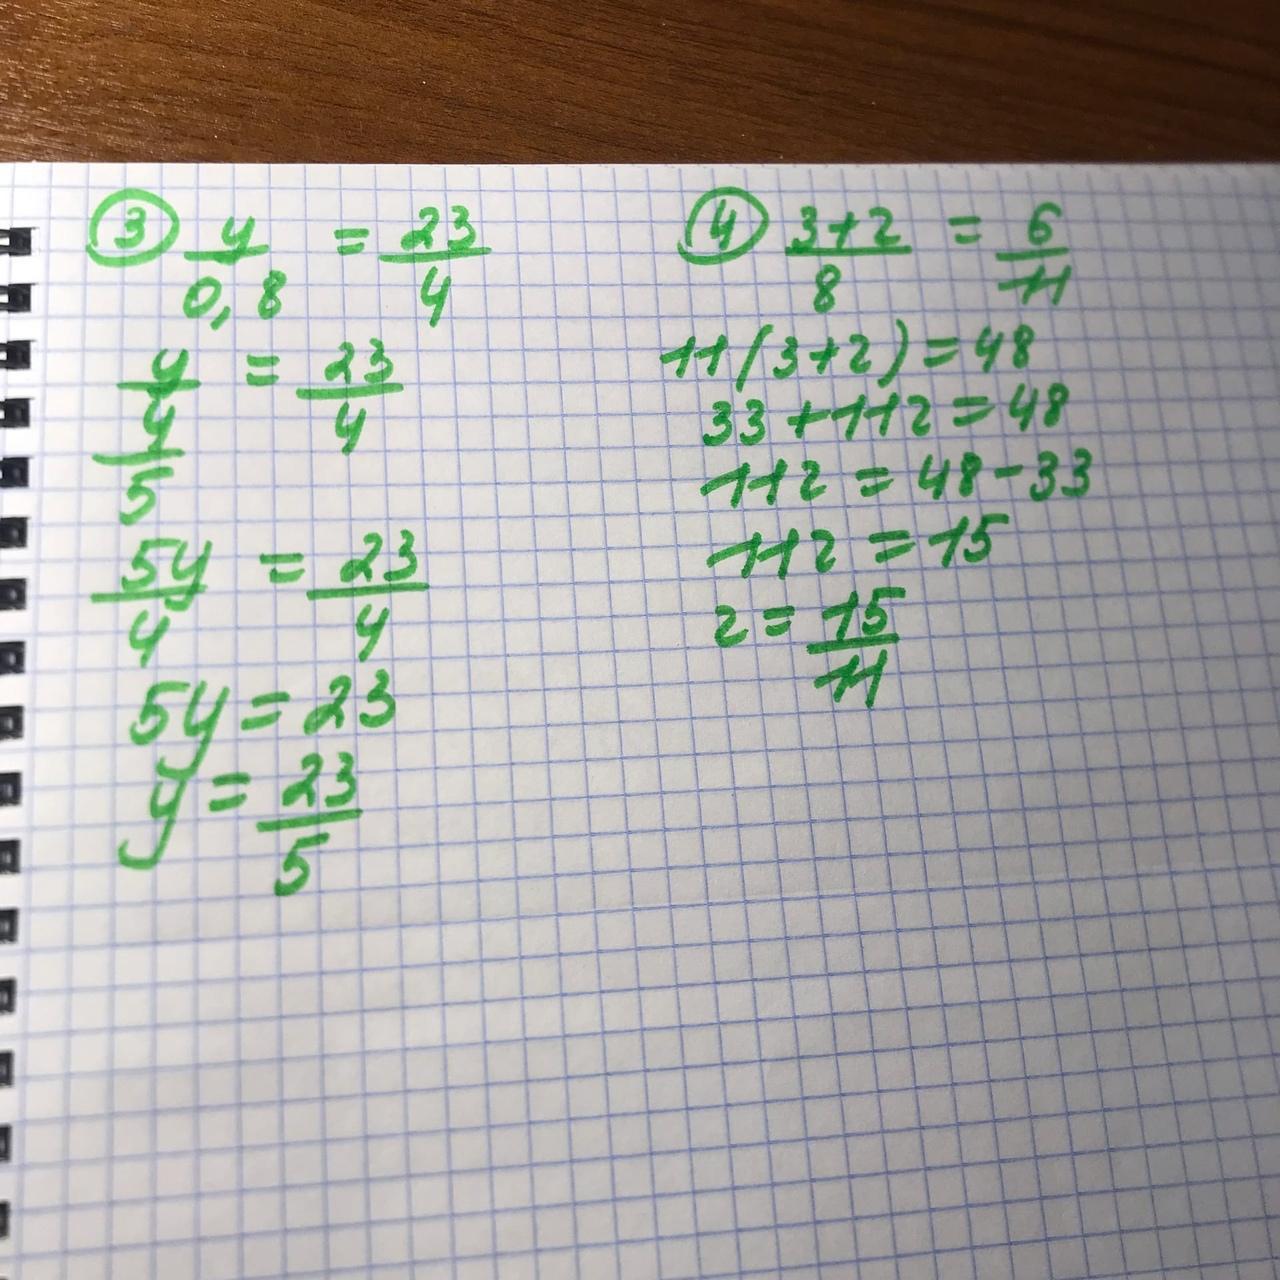 ③ y/0,8 = 23/4
y/(4/5) = 23/4
5y/4 = 23/4
5y = 23
y = 23/5
④ (3+z)/8 = 6/11
11(3+z) = 48
33+11z = 48
11z = 48-33
11z = 15
z = 15/11